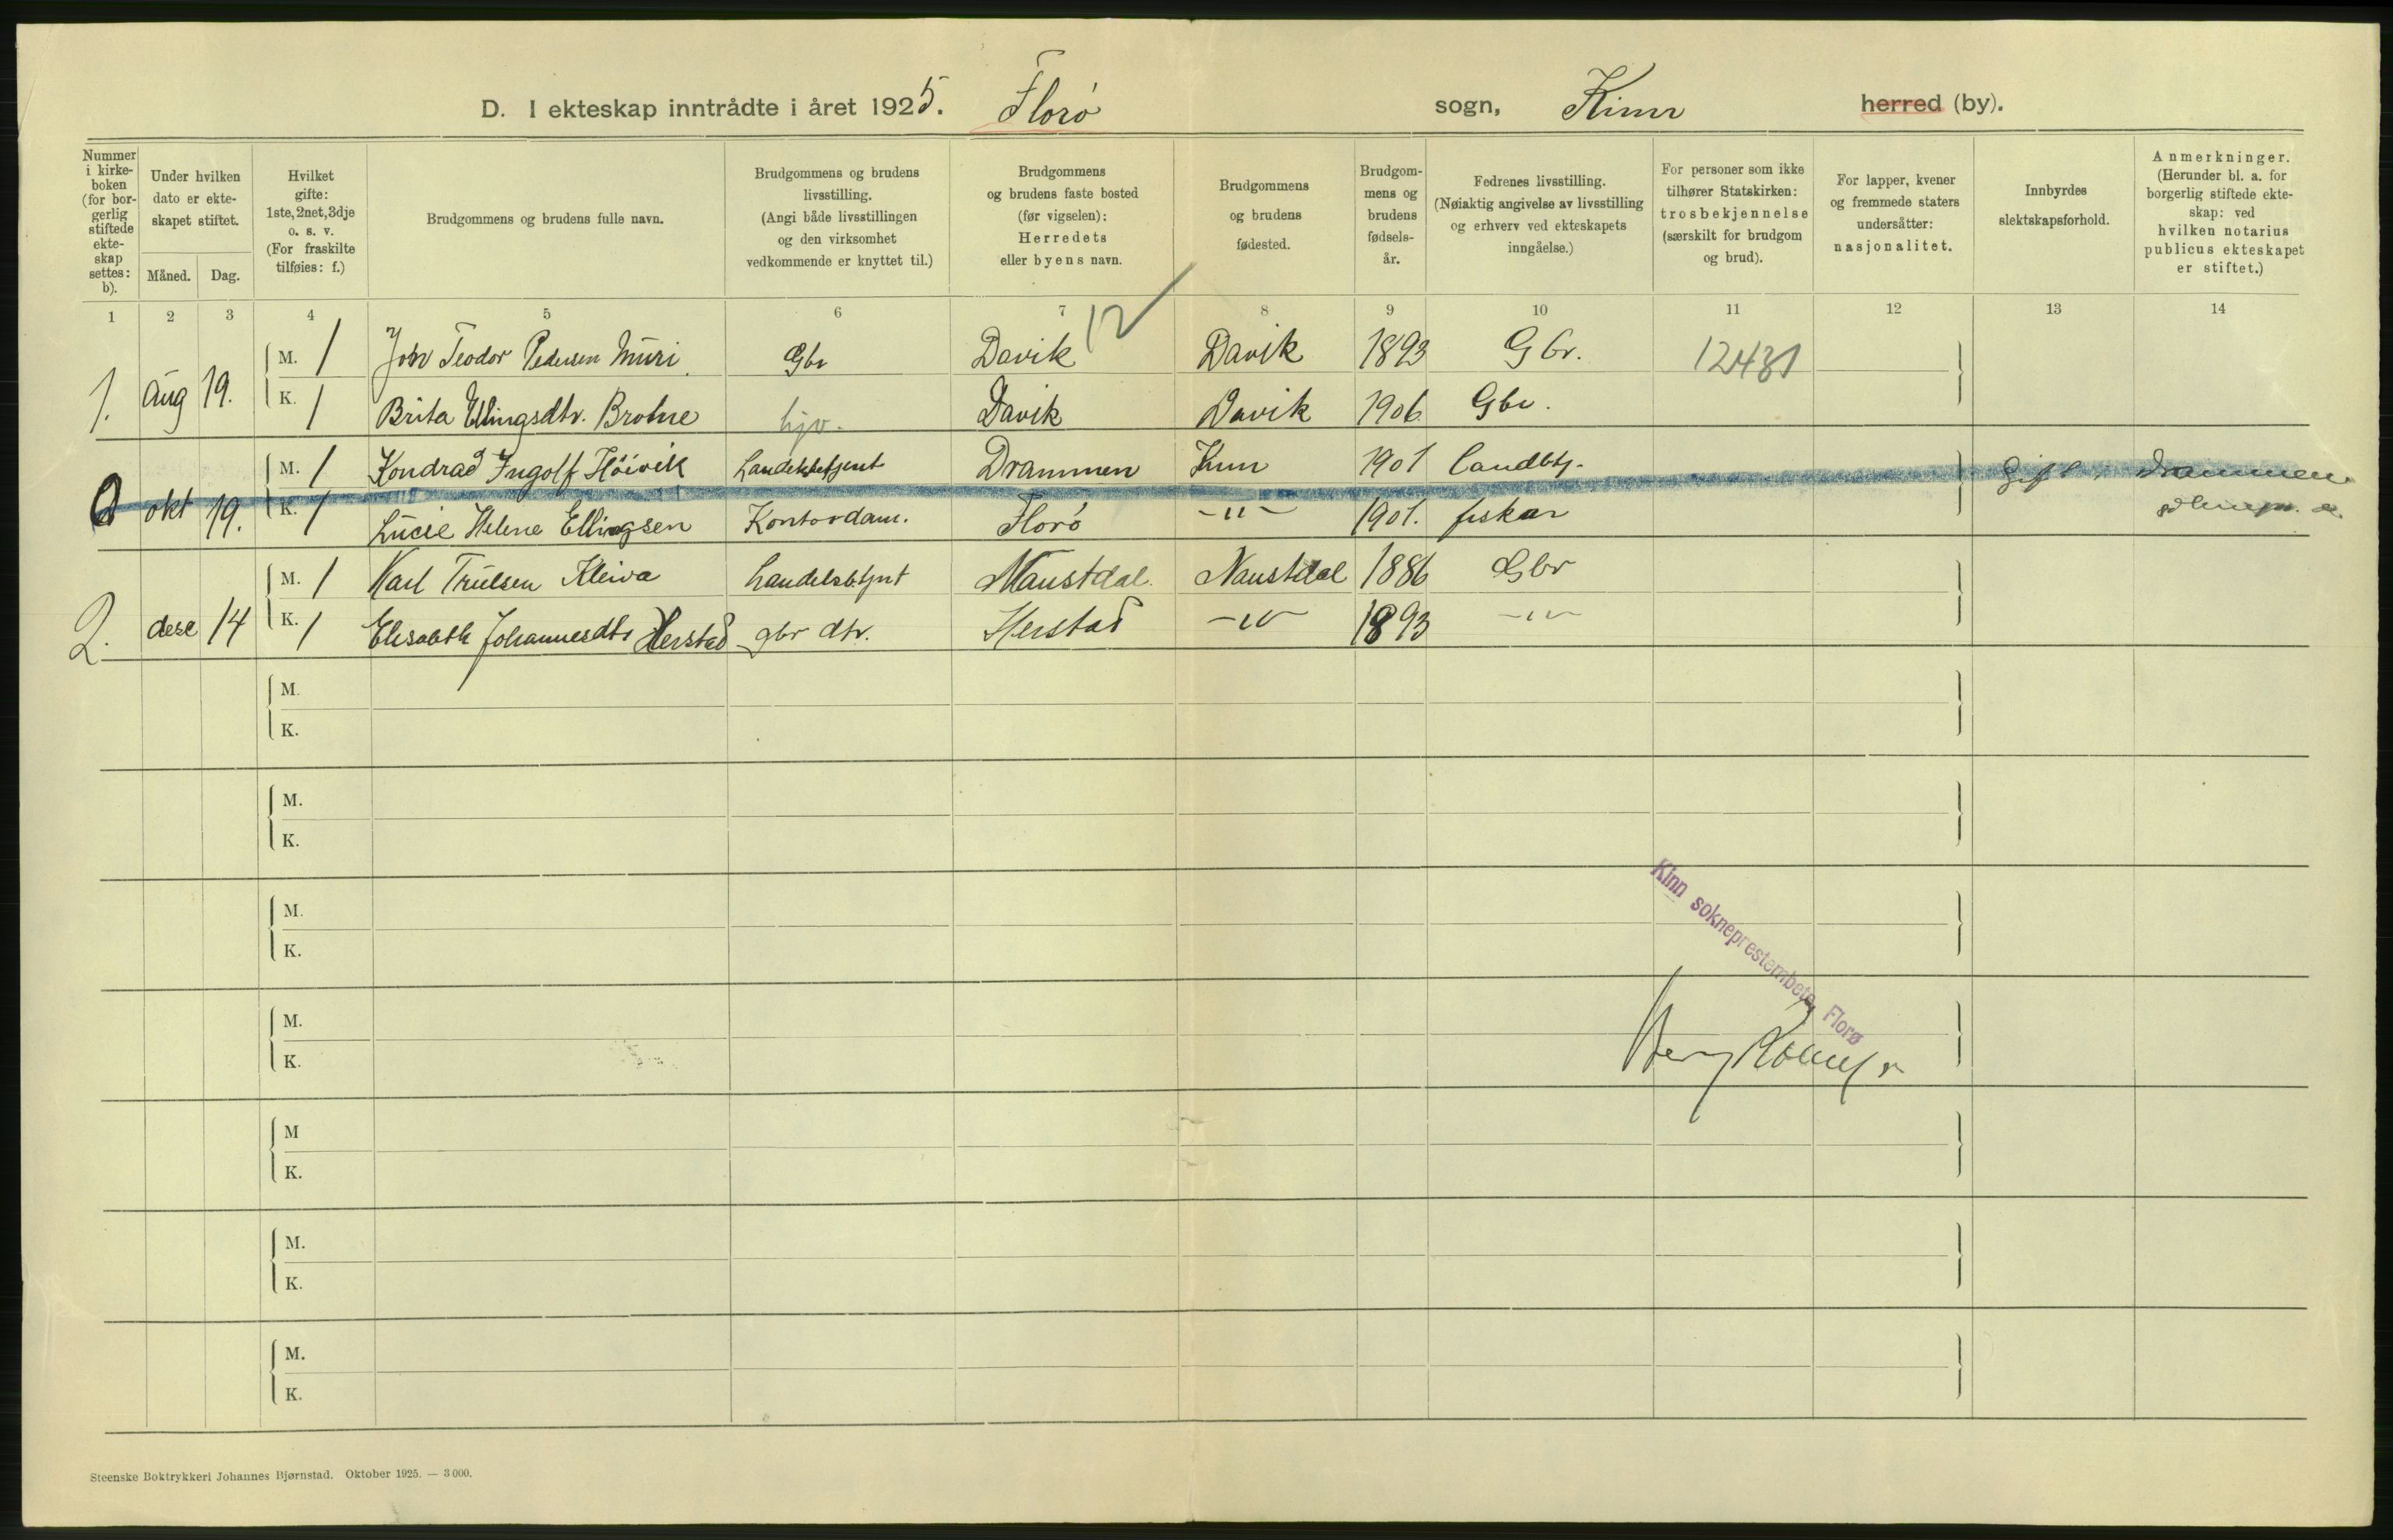 D. I ekteskap inntrådte i året 1925. Florö sogn, Kinn herred (by).
Nummer i kirke-boken (for bor-gerlig stiftede ekte-skap settes: b).
Under hvilken dato er ekte-skapet stiftet.
Måned. Dag.
Hvilket gifte: 1ste, 2net, 3dje o. s. v. (For fraskilte tilføies: f.)
Brudgommens og brudens fulle navn.
Brudgommens og brudens livsstilling. (Angi både livsstillingen og den virksomhet vedkommende er knyttet til.)
Brudgommens og brudens faste bosted (før vigselen): Herredets eller byens navn.
Brudgommens og brudens fødested.
Brudgom-mens og brudens fødsels-år.
Fedrenes livsstilling. (Nøiaktig angivelse av livsstilling og erhverv ved ekteskapets inngåelse.)
For personer som ikke tilhører Statskirken: trosbekjennelse (særskilt for brudgom og brud).
For lapper, kvener og fremmede staters undersåtter: nasjonalitet.
Innbyrdes slektskapsforhold.
Anmerkninger. (Herunder bl. a. for borgerlig stiftede ekte-skap: ved hvilken notarius publicus ekteskapet er stiftet.)
1 2 3 4 5 6 7 8 9 10 11 12 13 14
12
1. Aug 19.
M. 1 Teodor Pedersen Muri Gbr Davik Davik 1893 Gbr. 12431
K. 1 Brita Ellingsdtr. Davik Davik 1906 Gbr.
okt 19.
M. 1 Kondrad Ingolf Höivik Drammen Kinn 1901 Gift i Drammen
K. 1 Lucie Helene Ellingsen Kontordam. Florö -"- 1901. fiskar
2. dese 14
M. 1 Karl Trulsen Kleiva handelsbtjnt Naustdal. Naustdal 1886 Gbr
K. 1 Elisabeth Johannesdtr Herstad gbr dtr. Herstad -"- 1893 -"-
M.
K.
M.
K.
M.
K.
M.
K.
M
K.
M.
K.
M.
K.
Kinn sokneprestembete, Florø
Steenske Boktrykkeri Johannes Bjørnstad. Oktober 1925. — 3 000.